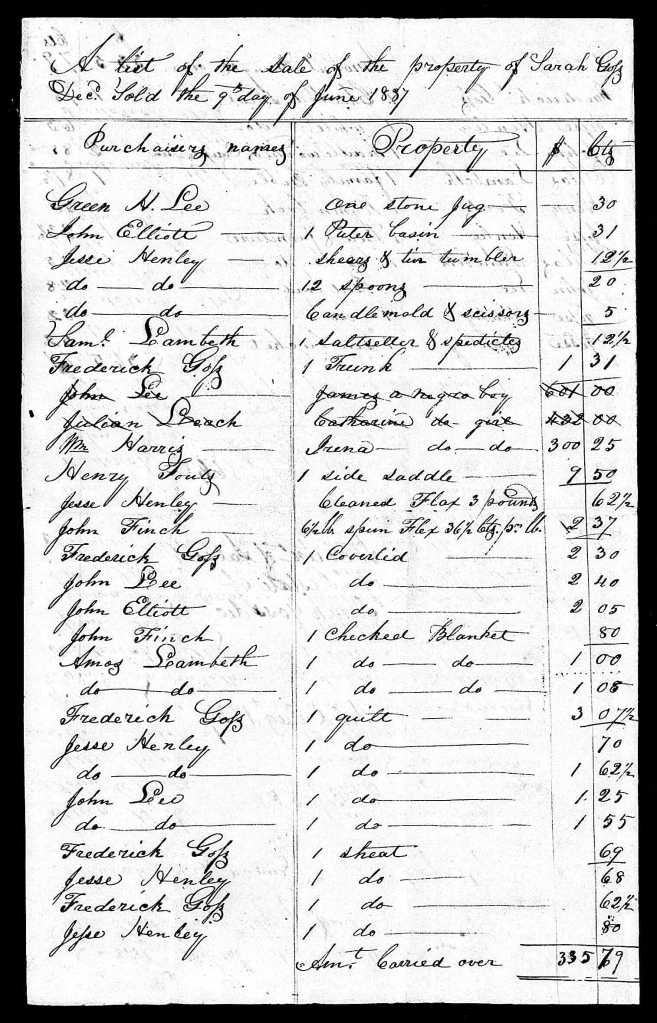 A list of the sale of the property of Sarah Goss
Decd. Sold the 9th day of June 1837
Purchaisers names Property $ Cts
Green H. Lee one stone jug 30
John Elliott 1 Puter basin 31
Jesse Henley shears & tin tumbler 12½
do do 12 spoons 20
do do Candlemold & scissors 5
Saml. Lambeth 1 saltseller & spedictes 12½
Frederick Goss 1 Trunk 1 31
John Lee James a negro boy 601 00
Julian Leach Catharine do girl 432 00
Wm Harris Irena do do 300 25
Henry Fouts 1 side saddle 9 50
Jesse Henley Cleaned Flax 3 pounds 62½
John Finch 6½ lb. spun Flex 36½ Cts. pr lb. 2 37
Frederick Goss 1 Coverlid 2 30
John Lee do 2 40
John Elliott do 2 05
John Finch 1 Checked Blanket 80
Amos Lambeth 1 do do 1 00
do do 1 do do 1 05
Frederick Goss 1 quilt 3 07½
Jesse Henley 1 do 70
do do 1 do 1 62½
John Lee 1 do 1. 25
do do 1 do 1 55
Frederick Goss 1 sheat 69
Jesse Henley 1 do 68
Frederick Goss 1 do 62½
Jesse Henley 1 do 80
Amt. Carried over 335 79